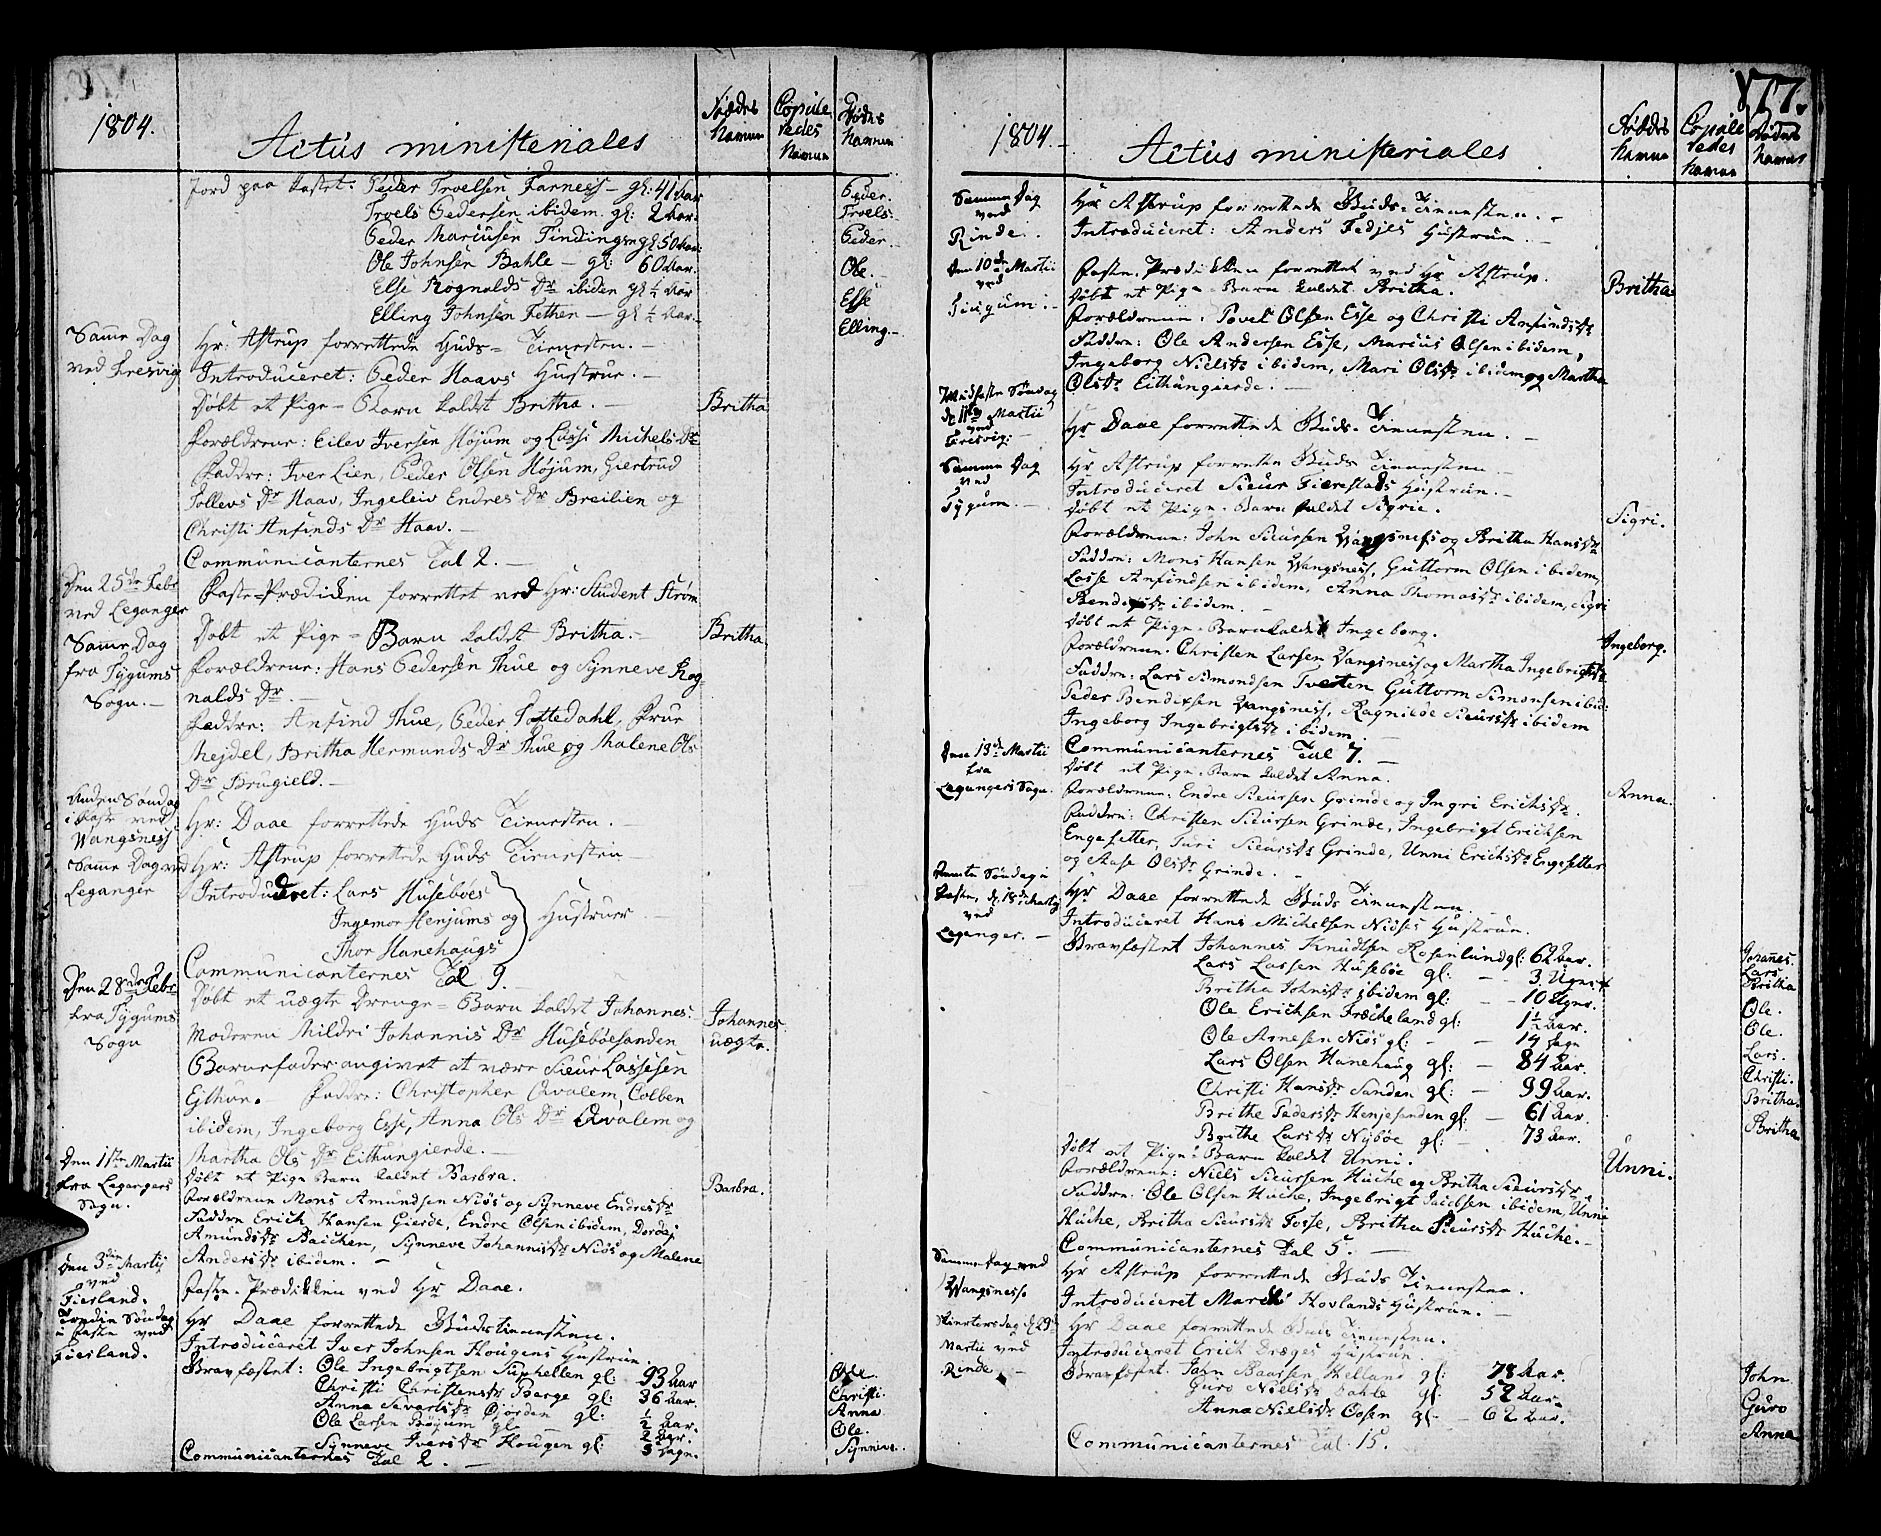 1804.
Actus ministeriales
Føddes
Navnn
Copule
redes
Navnn
Dødes
Navnn
Jord paa kastet: Peder Troelsen Farnees - gl: 41 Aar
Peder.
Troels Pedersen ibidem. gl: 2 Aar.
Troels.
Peder Mariusen Tindingen gl 50 Aar:
Peder.
Ole Johnsen Bahle - gl: 60 Aar.
Ole.
Else Rognalds Dr ibiden gl ½ Aar
Else
Elling Johnsen Fetten - gl ½ Aar-
Elling.-
Samme Dag
ved Fresvig
Hr: Astrup forrettede Guds= Tienesten. -
Introduceret: Peder Haavs Hustrue. -
Døbt et Pige= Barn kaldet Britha. -
Britha
Forældrene: Eilev Iversen Højum og Lussi Michels Dr
Faddre: Iver Lien, Peder Olsen Højum, Giertrud
Tollevs Dr Haav, Ingeleiv Endres Dr Breilien og
Christi Anfinds Dr Haav. -
Communicanternes Tal 2. -
Den 25de Febr
ved Leganger
Faste=Prædiken forrettet ved Hr: Student Strøm
Samme Dag
fra Tygums
Sogn. -
Døbt et Pige= Barn kaldet Britha. -
Britha
Forældrene: Hans Pedersen Thue og Synneve Rog-
nalds Dr. -
Faddre: Anfind Thue, Peder Tottedahl, Frue
Mejdel, Britha Hermunds Dr Thue og Malene Ols
Dr Brugield. -
Anden Søndag
i Faste ved
Wangsness
Hr: Daae forrettede Guds Tienesten. -
Samme Dag ved
Leganger
Hr: Astrup forrettede Guds Tienesten -
Introduceret: Lars Husebøes
Ingemor Henjums og
Hustruer. -
Thor Hanehaugs
Communicanternes Tal 9. -
Den 28de Febr
fra Tygums
Sogn
Døbt et uægte Drenge= Barn kaldet Johannes.
Johannes
uægte.
Moderen Mildri Johannis Dr Husebøesanden
Barnefader angivet at være Sieur Lassesen
Ejthun. Faddre: Christopher Qvalem, Colben
ibidem, Ingeborg Esse, Anna Ols Dr Qvalem og
Martha Ols Dr Eithungierde. -
Den 11te Martii
fra Legangers
Sogn.
Døbt et Pige Barn kaldet Barbra.
Barbra.
Forældrene Mons Amundsen Niøs og Synneve Endres Dr
Faddre Erich Hansen Gierde, Endre Olsen ibidem, Dordej
Amunds Dr Baichen, Synneve Johannis Dr Niøs og Malene
Anders Dr ibidem. -
Den 3die Martij
ved
Fierland.
Faste-Prædikken ved Hr Daae.
Tredie Søndag
i Faste ved
Fierland.
Hr Daae forrettede Guds tienesten.
Introduceret Iver Johnsen Hougens Hustrun.
Gravfæstet: Ole Ingebrigtsen Suphellen gl: 93 Aar
Ole
Christi Christens Dr Berge gl: 36 Aar.
Christi.
Anna Sivarts Dr Øjorden gl: ½ Aar.
Anna
Ole Larsen Bøyum gl: 2 Aar.
Ole.
Synneve Ivers Dr Hougen gl: 3 Dagn.
Synneve.
Communicanternes Tal 2. -
177.
1804.
Actus ministeriales
Føddes
Navnn
Copule
redes
Navnn
Dødes
Navnn
Samme Dag
ved
Rinde.
Hr Astrup forrettede Guds-Tienesten. -
Introduceret: Anders Fedjes Hustrun. -
Den 10de Martii
ved
Faste-Prædikken forrettet ved Hr Astrup.
Døbt et Pige-Barn kaldet Britha.
Britha
Forældrene: Povel Olsen Esse og Christi Anfinds Dr
Faddre: Ole Andersen Esse, Marcus Olsen ibidem,
Ingeborg Niels Dr ibidem, Mari Ols Dr ibidem og Martha
Ols Dr Eithungierde. -
Midfaste Søndag
d. 11te Martii
ved
Fresvig:
Hr Daae forrettede Guds-Tienesten. -
Samme Dag
ved
Tygum. -
Hr Astrup forrettede Guds Tienesten -
Introduceret Sieur Fierestads Hustrun. -
Døbt et Pige-Barn kaldet Sigrie.
Sigri.
Forældrene: John Sieursen Wangsness og Britha Hans Dr
Faddre: Mons Hansen Wangsness, Guttorm Olsen ibidem,
Lasse Anfindsen ibidem, Anna Thomas Dr ibidem, Sigri
Bendix Dr ibidem. -
Døbt et Pige-Barn kaldet Ingeborg.
Ingeborg.
Forældrene: Christen Larsen Wangsness og Martha Ingebrigts Dr
Faddre: Lars Simondsen Tveten, Guttorm Simonsen ibid:
Peder Bendixsen Wangsness, Ragnilde Sieurs Dr ibidem
Ingeborg Ingebrigts Dr ibidem. -
Communicanternes Tal 7. -
Den 13de Martii
fra
Legangers Sogn.
Døbt et Pige-Barn kaldet Anna.
Anna.
Forældrene: Endre Sieursen Grinde og Ingri Erichs Dr.
Faddre: Christen Sieursen Grinde, Ingebrigt Erichsen
Engesetter, Turi Sieurs Dr Grinde, Unni Erichs Dr Engesetter
og Aase Ols Dr Grinde. -
Femte Søndag i
Fasten, d. 18de Martij
ved
Leganger. -
Hr Daae forrettede Guds Tienesten.
Introduceret Hans Michelsen Niøses Hustrun.
Gravfæstet Johannes Knudtsen Rosenlund gl: 62 Aar.
Johannes.
Lars Larsen Husebøe gl: - 3 Uger.
Lars
Britha Johns Dr ibidem gl: - 10 Uger.
Britha
Ole Erichsen Frøcheland gl: 1½ Aar.
Ole.
Ole Arnesen Niøs gl: - 14 Dagn
Ole.
Lars Olsen Hanehaug gl: - 84 Aar.
Lars.
Christi Hans Dr Sanden gl: - 99 Aar.
Christi.
Brithe Peders Dr Henjesanden gl: - 61 Aar.
Britha.
Brithe Lars Dr Nybøe gl: - 73 Aar.
Britha
Døbt et Pige-Barn kaldet Unni.
Unni.
Forældrene: Niels Sieursen Huche og Britha Sieurs Dr
Faddre: Ole Olsen Huche, Ingebrigt Jacobsen ibidem, Unni
Huche, Britha Sieurs Dr Fosse, Britha Sieurs Dr Huche. -
Communicanternes Tal 5. -
Samme Dag ved
Wangsness.
Hr Astrup forrettede Guds Tienesten.
Introduceret Hovlands Hustrun. -
Skiertorsdag d. 29de
Martii ved
Rinde.
Hr Daae forrettede Guds Tienesten.
Introduceret Erich Drægs Hustrun.
Gravfæstet: John Baarsen Helland gl: 78 Aar.
John
Guro Niels Dr Dahle gl: 52 Aar.
Guro
Anna Niels Dr Oosen gl: - 62 Aar.
Anna
Communicanternes Tal. 15.